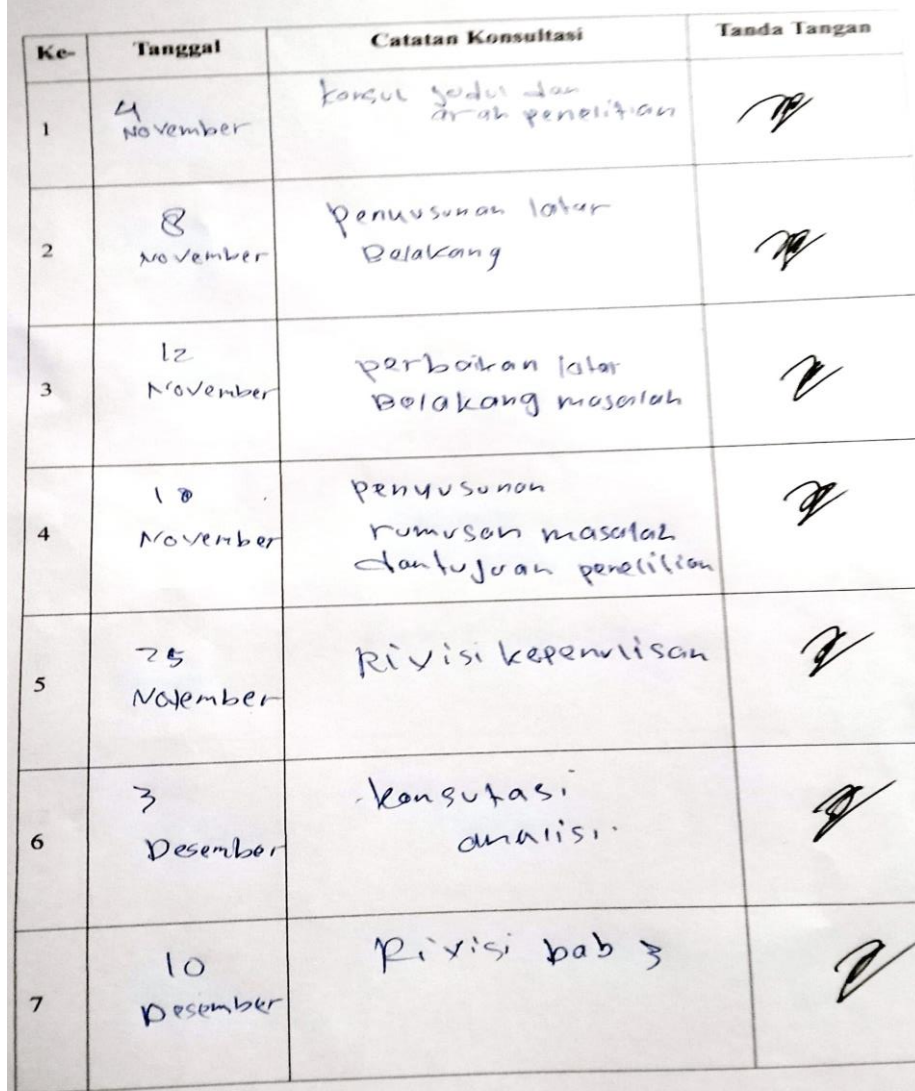 Ke- Tanggal Catatan Konsultasi Tanda Tangan
1
4
November
Konsul Judul dan
arah penelitian
2
8
November
Penyusunan latar
Belakang
3
12
November
perbaikan latar
Belakang masalah
4
18
November
penyusunan
rumusan masalah
dan tujuan penelitian
5
25
November
Rivisi kepenulisan
6
3
Desember
konsutasi
analisi
7
10
Desember
Rivisi bab 3